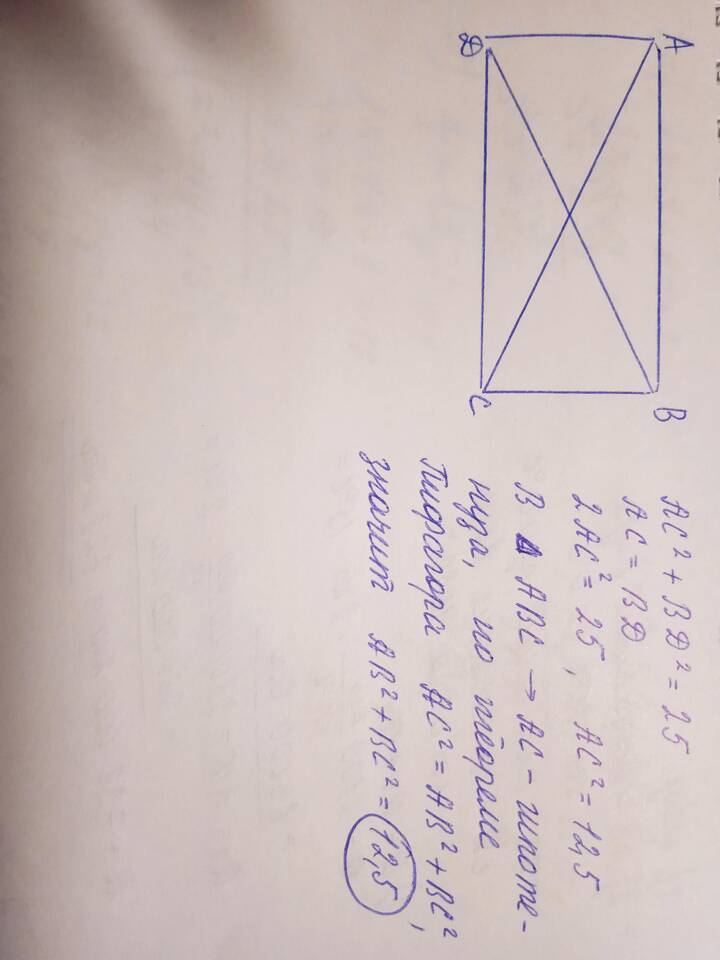 A
B
Д
C
AC² + BД² = 25
AC = BД
2AC² = 25, AC² = 12,5
В Δ ABC → AC - гипоте-
нуза, по теореме
Пифагора AC² = AB² + BC²,
значит AB² + BC² = 12,5